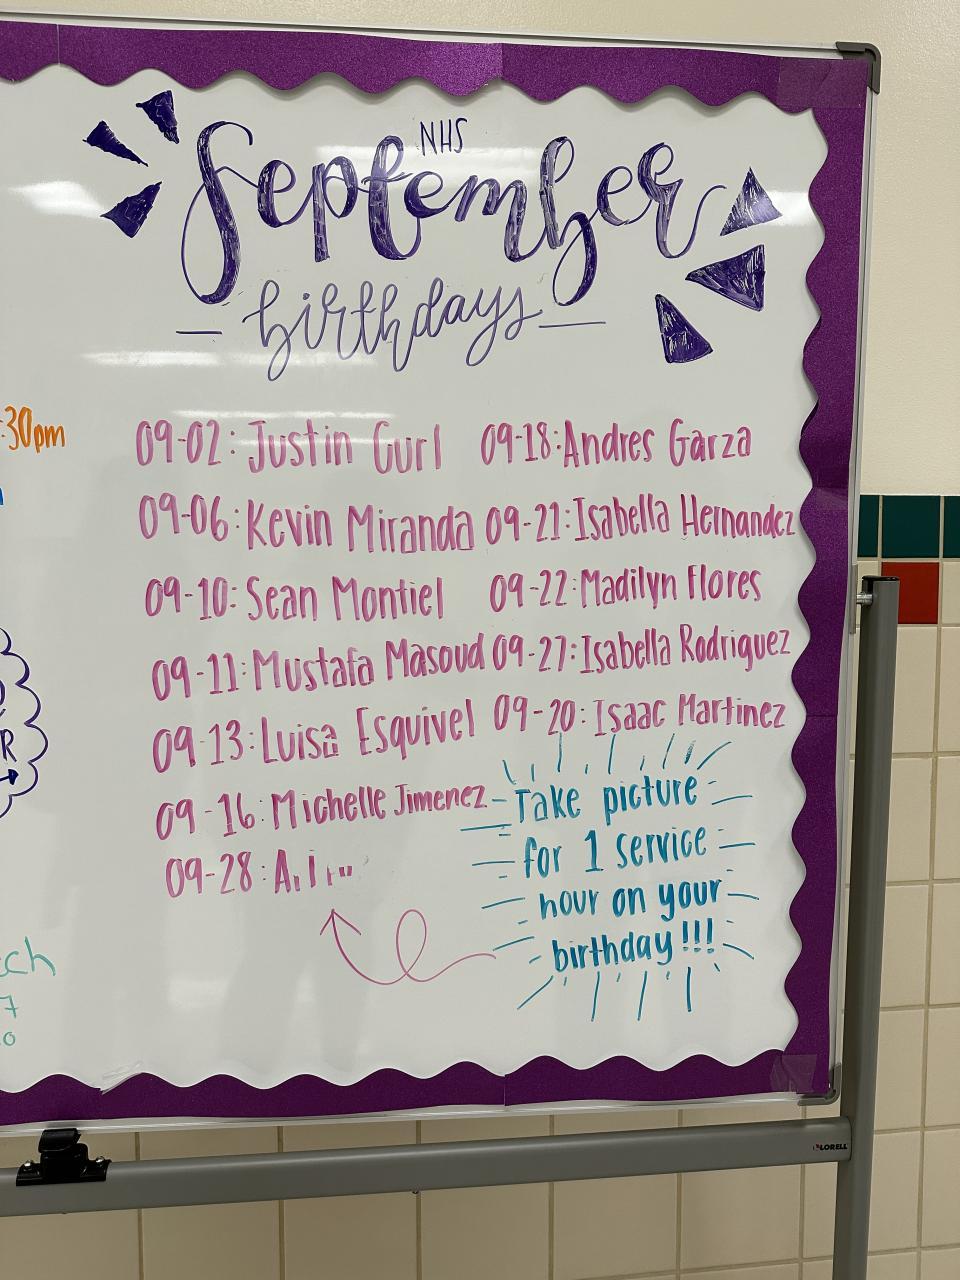 NHS
September
birthdays
:30pm
09-02: Justin Curl
09-06: Kevin Miranda
09-10: Sean Montiel
09-11: Mustafa Masoud
09-13: Luisa Esquivel
09-16: Michelle Jimenez
09-28:
09-18: Andres Garza
09-21: Isabella Hernandez
09-22: Madilyn Flores
09-27: Isabella Rodriguez
09-20: Isaac Martinez
Take picture
for 1 service
hour on your
birthday!!!
R
ch
7
LORELL